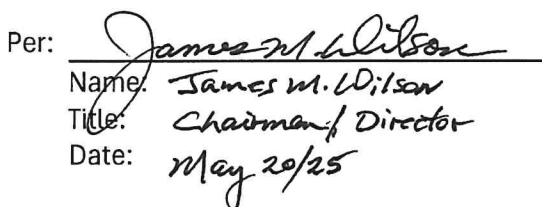 Per: James M. Wilson
Name: James M. Wilson
Title: Chairman / Director
Date: May 20/25